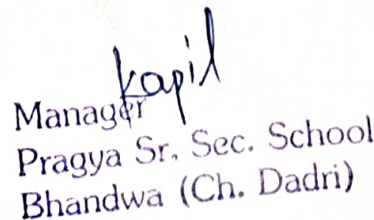 Kapil
Manager
Pragya Sr. Sec. School
Bhandwa (Ch. Dadri)